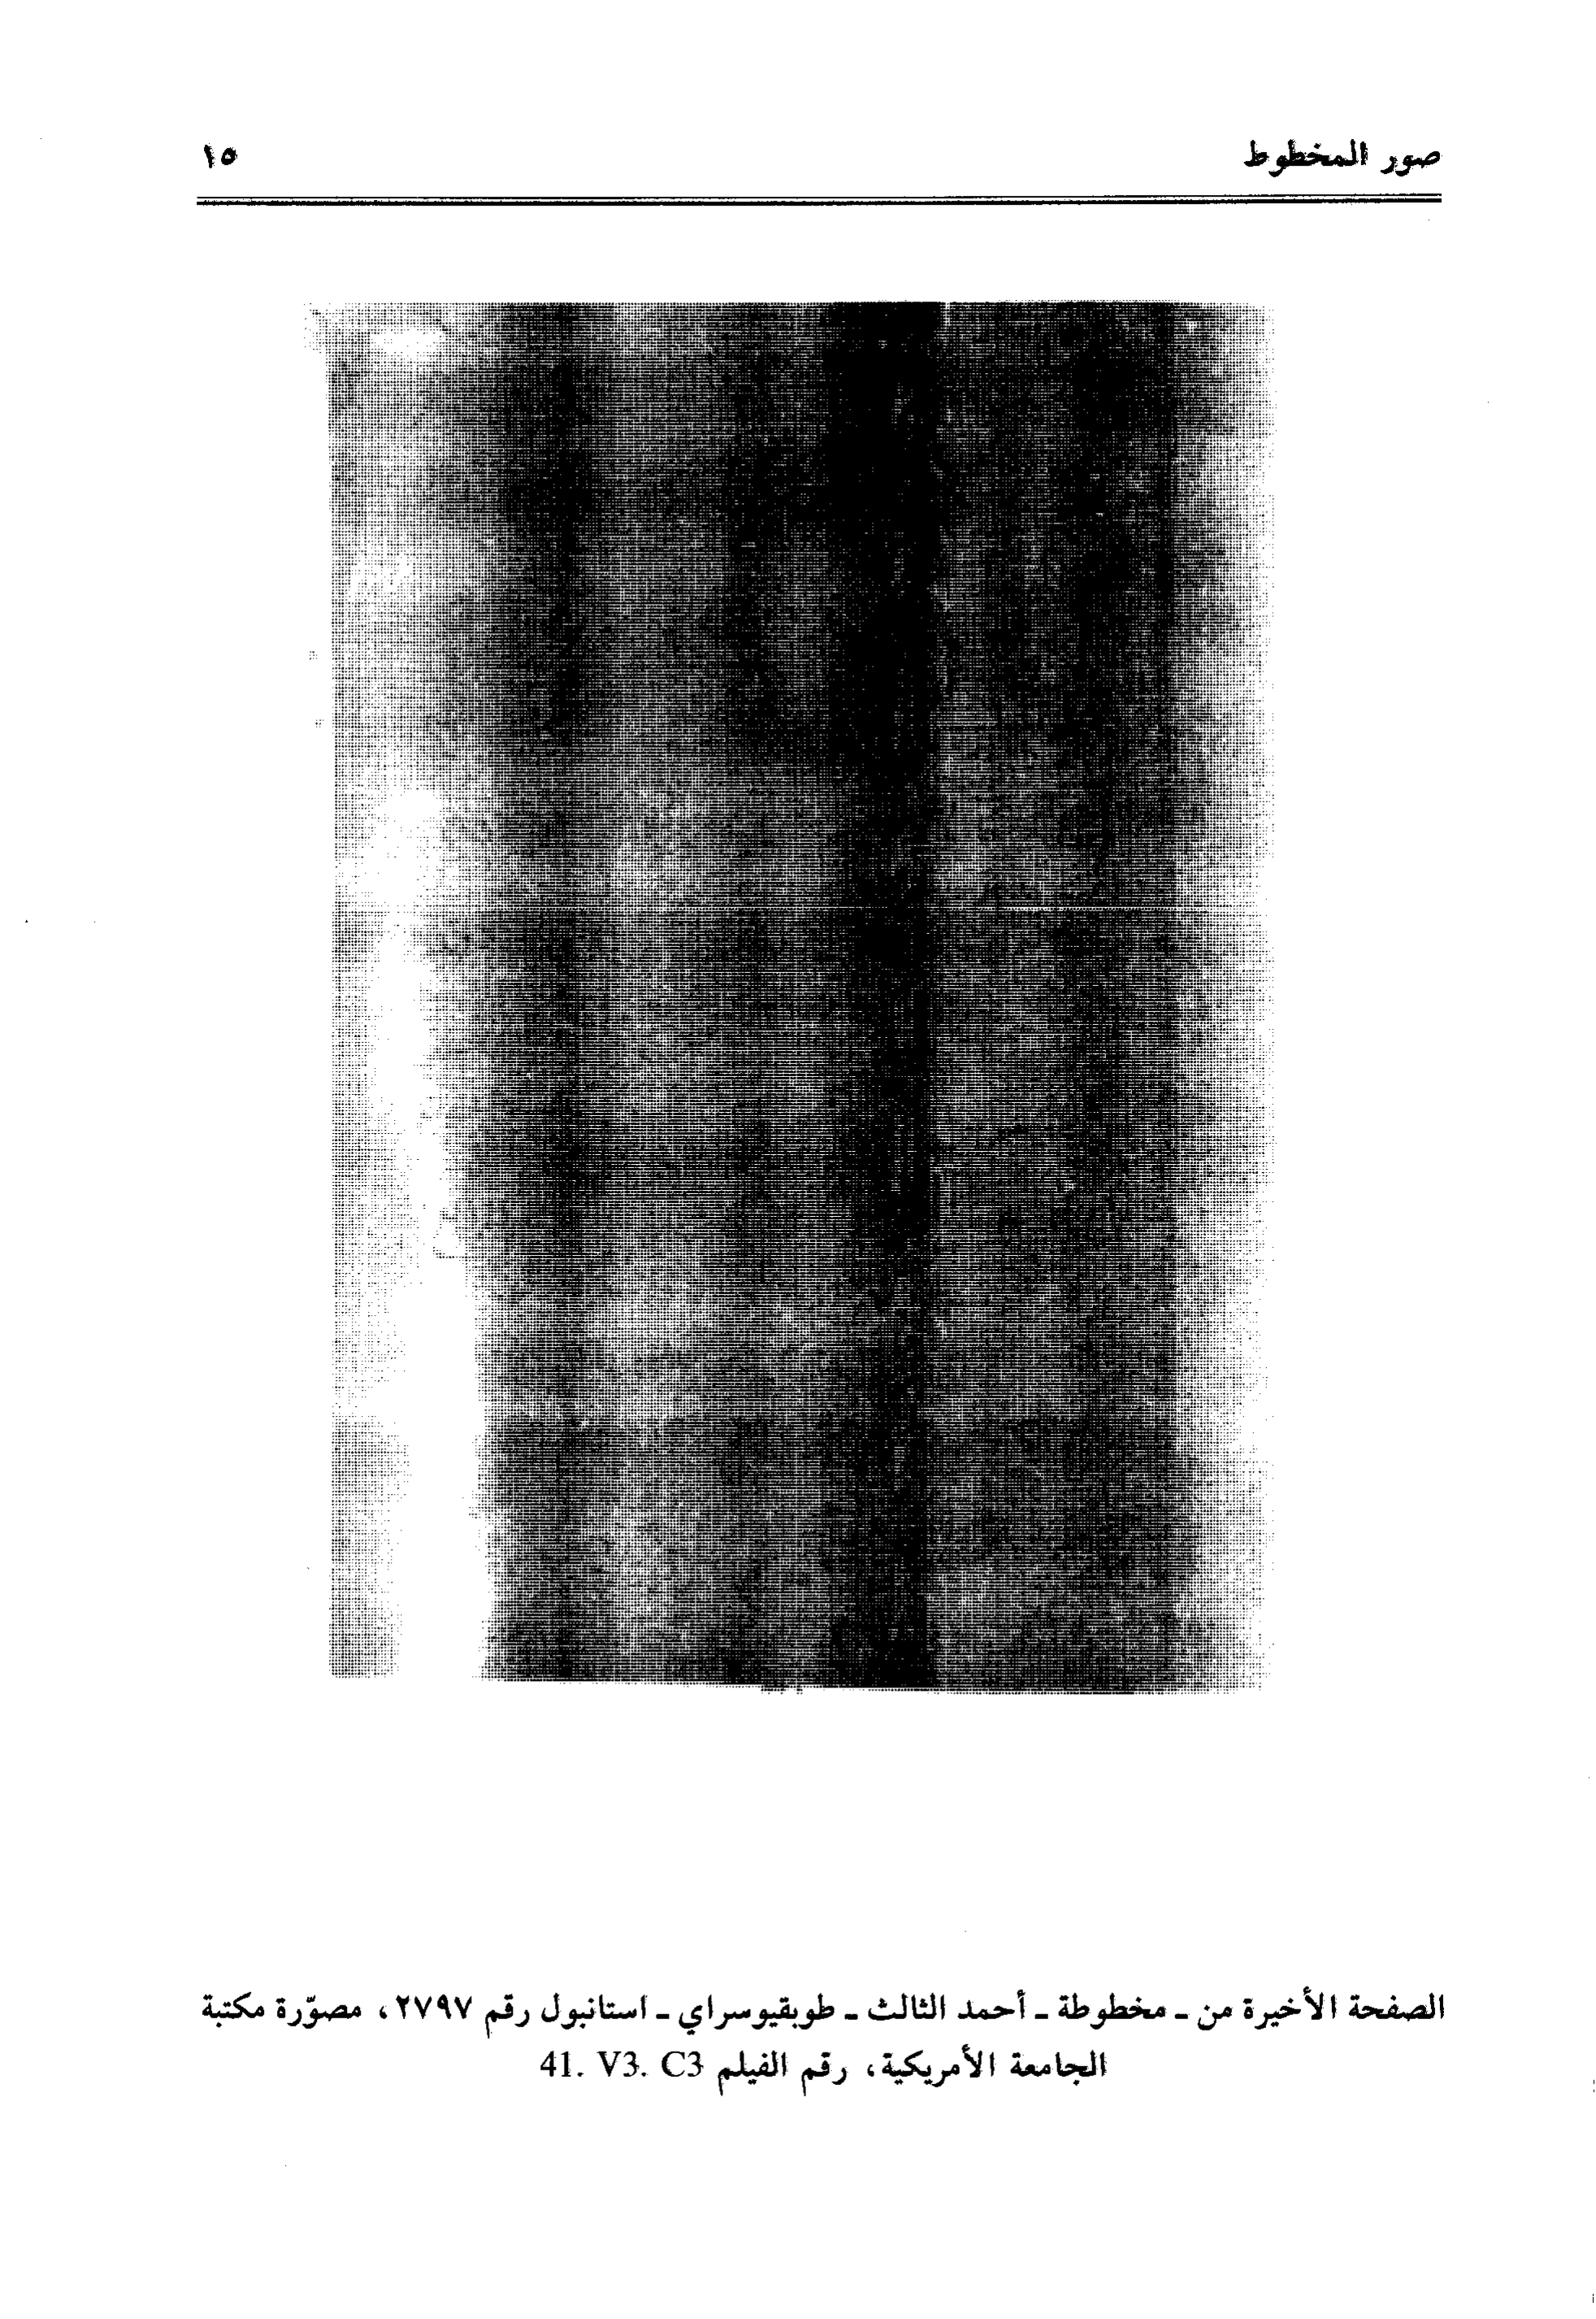 صور المخطوط
١٥
الصفحة الأخيرة من ـ مخطوطة ـ أحمد الثالث ـ طوبقيوسراي ـ استانبول رقم ٢٧٩٧، مصوّرة مكتبة
الجامعة الأمريكية، رقم الفيلم 41. V3. C3